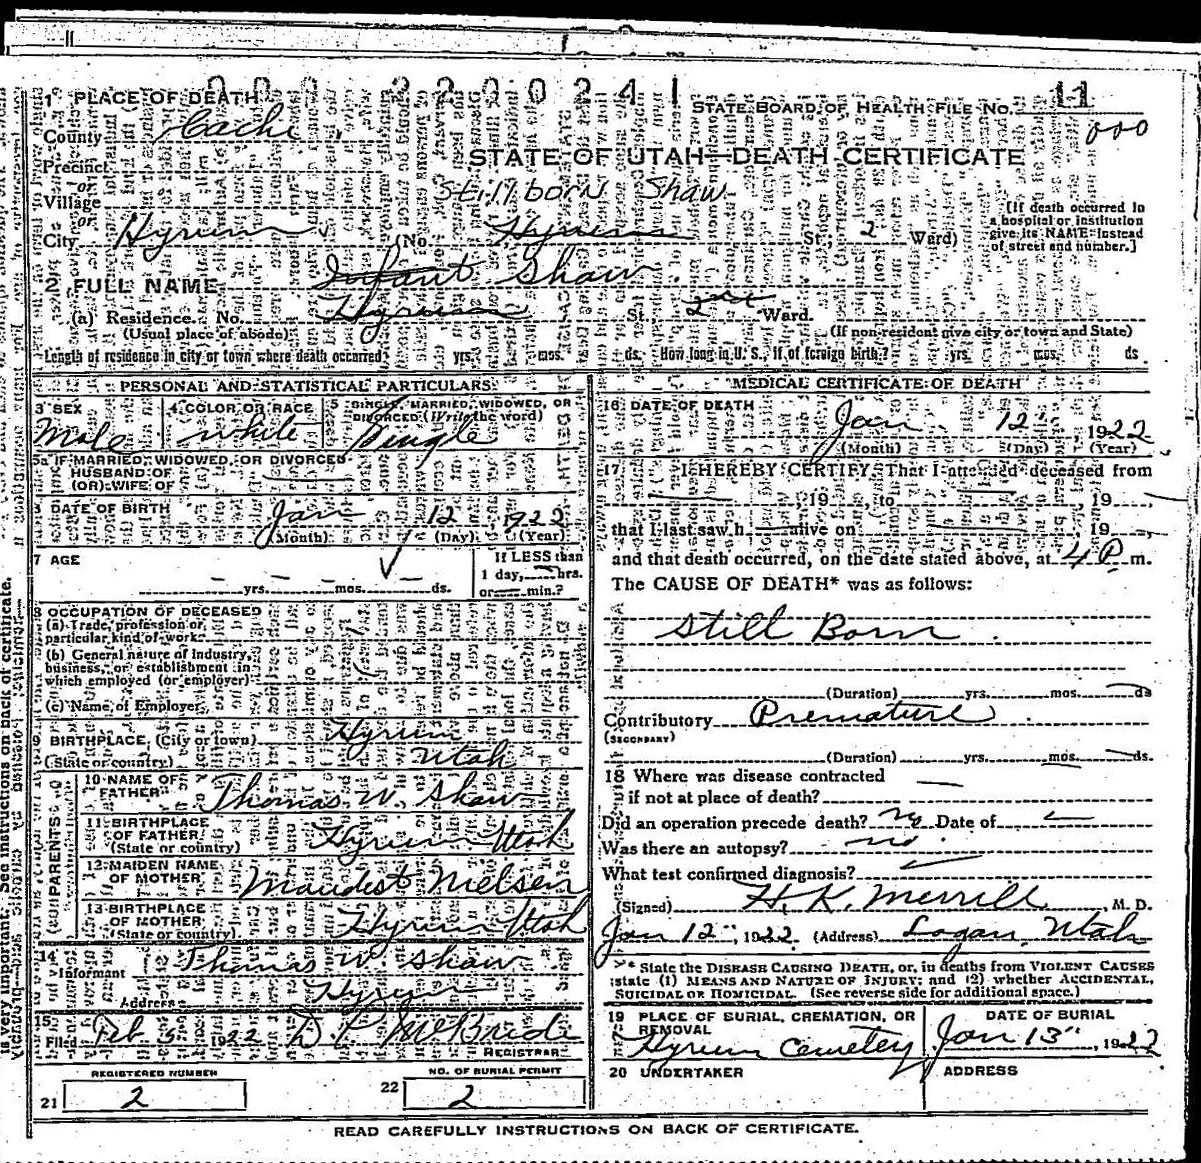 000 220 0241
1 PLACE OF DEATH
STATE BOARD OF HEALTH FILE NO. 11
County Cache
000
Precinct
STATE OF UTAH—DEATH CERTIFICATE
or
Village
Stillborn Shaw
or
City Hyrum (No. Hyrum St. 2 Ward)
[If death occurred in a hospital or institution give its NAME instead of street and number.]
Infant Shaw
2 FULL NAME
(a) Residence. No. Hyrum St. 2nd Ward.
(Usual place of abode)
(If non-resident give city or town and State)
Length of residence in city or town where death occurred yrs. mos. ds. How long in U. S., if of foreign birth? yrs. mos. ds
PERSONAL AND STATISTICAL PARTICULARS
3 SEX
Male
4 COLOR OR RACE
White
5 SINGLE, MARRIED, WIDOWED, OR DIVORCED (Write the word)
Single
5a IF MARRIED, WIDOWED, OR DIVORCED
HUSBAND OF
(OR) WIFE OF
DATE OF BIRTH
Jan 12 1922
(Month) (Day) (Year)
7 AGE
yrs. mos. ds.
If LESS than
1 day, hrs.
or min.?
8 OCCUPATION OF DECEASED
(a) Trade, profession or
particular kind of work
(b) General nature of Industry,
business, or establishment in
which employed (or employer)
(c) Name of Employer
9 BIRTHPLACE, (City or town) Hyrum
(State or country) Utah
PARENTS
10 NAME OF
FATHER Thomas W. Shaw
11 BIRTHPLACE
OF FATHER
(State or country) Hyrum Utah
12 MAIDEN NAME
OF MOTHER Maudest Nielsen
13 BIRTHPLACE
OF MOTHER
(State or country) Hyrum Utah
14
Informant Thomas W. Shaw
Address Hyrum
15
Filed Feb 5 1922 D. C. McBride
REGISTRAR
REGISTERED NUMBER
21 2
NO. OF BURIAL PERMIT
22 2
MEDICAL CERTIFICATE OF DEATH
16 DATE OF DEATH
Jan 12" 1922
(Month) (Day) (Year)
17 I HEREBY CERTIFY, That I attended deceased from
, 19 to , 19
that I last saw h alive on , 19
and that death occurred, on the date stated above, at 4 P. m.
The CAUSE OF DEATH* was as follows:
Still Born
(Duration) yrs. mos. ds
Contributory Premature
(SECONDARY)
(Duration) yrs. mos. ds.
18 Where was disease contracted
if not at place of death?
Did an operation precede death? No Date of
Was there an autopsy? no
What test confirmed diagnosis?
(Signed) H. K. Merrill, M. D.
Jan 12", 1922 (Address) Logan, Utah
* State the DISEASE CAUSING DEATH, or, in deaths from VIOLENT CAUSES
state (1) MEANS AND NATURE OF INJURY; and (2) whether ACCIDENTAL,
SUICIDAL OR HOMICIDAL. (See reverse side for additional space.)
19 PLACE OF BURIAL, CREMATION, OR
REMOVAL
Hyrum Cemetery
DATE OF BURIAL
Jan 13", 1922
20 UNDERTAKER
ADDRESS
READ CAREFULLY INSTRUCTIONS ON BACK OF CERTIFICATE.
is very important. See instructions on back of certificate.